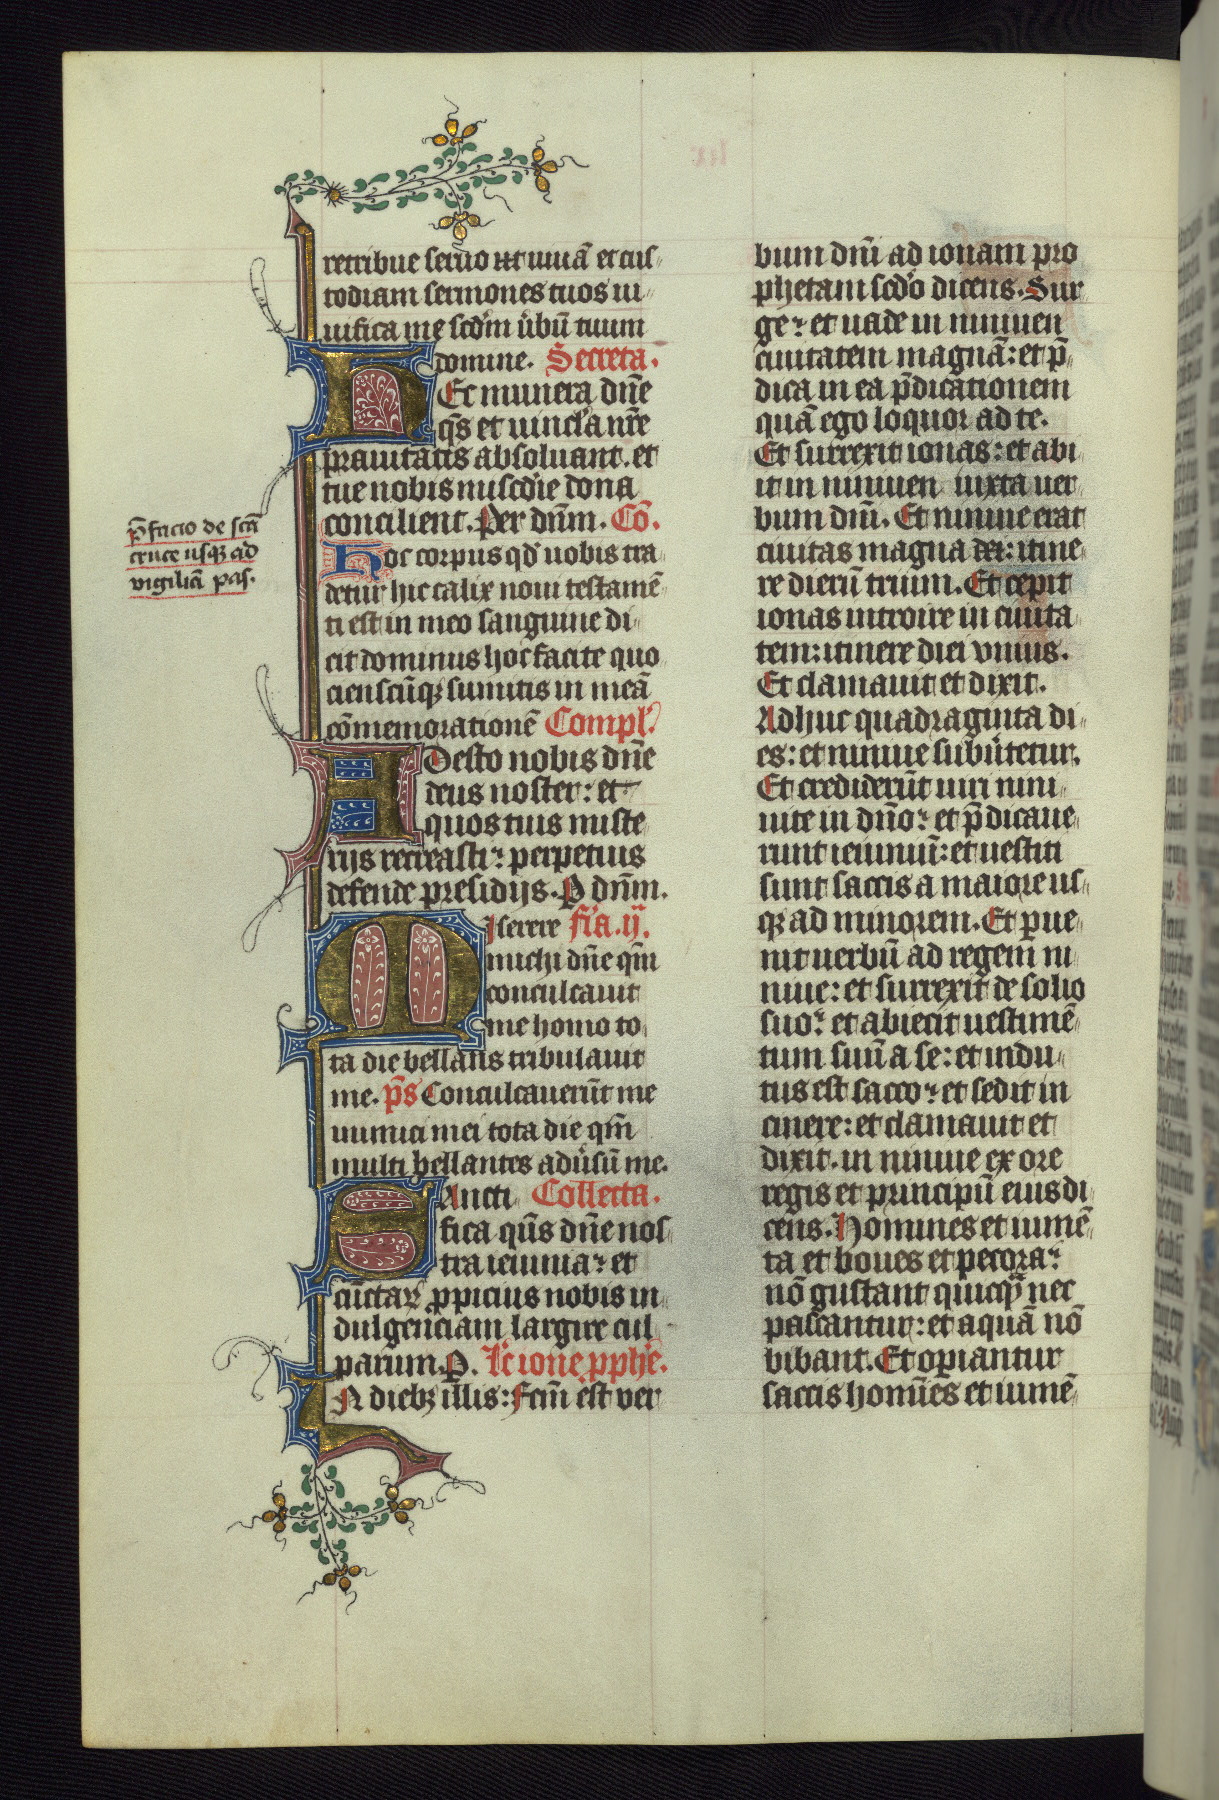 retribue seruo tuo uiuā et cus
todiam sermones tuos ui
uifica me scd̄m ūbū tuum
domine. Secreta.
HEc munera dn̄e
qs̄ et uincla nr̄e
prauitatis absoluant. et
tue nobis miscd̄ie dona
concilient. Per dn̄m. Cō.
Hoc corpus qd̄ uobis tra
detur hic calix noui testamē
ti est in meo sanguine di
cit dominus hoc facite quo
cienscūqȝ sumitis in meā
cōmemorationē Compl'
ADesto nobis dn̄e
deus noster: et
quos tuis miste
rijs recreasti: perpetuis
defende presidijs. P dn̄m.
MIserere fr̄ia. ij.
michi dn̄e qm̄
conculcauit
me homo to
ta die bellans tribulauit
me. ps̄ Conculcauerūt me
inimici mei tota die qm̄
multi bellantes adūsū me.
SAncti Collecta.
fica qs̄ dn̄e nos
tra ieiunia: et
cūctaꝝ ꝓpicius nobis in
dulgenciam largire cul
parum. P. Lc̄ ione ꝓphe.
IN diebȝ illis: Fcm̄ est ver
p̄facio de scā
cruce usqȝ ad
vigiliā pas.
bum dn̄i ad ionam pro
phetam scd̄o dicens. Sur
ge: et uade in niniuen
ciuitatem magnā: et p̄
dica in ea p̄dicationem
quā ego loquor ad te.
Et surrexit ionas: et abi
it in niniuen iuxta uer
bum dn̄i. Et niniue erat
ciuitas magna dei: itine
re dierū trium. Et cepit
ionas introire in ciuita
tem: itinere diei vnius.
Et clamauit et dixit.
Adhuc quadraginta di
es: et niniue subūtetur.
Et crediderūt uiri nini
uite in dn̄o: et p̄dicaue
runt ieiuniū: et uestiti
sunt saccis a maiore us
qȝ ad minorem. Et pue
nit uerbū ad regem ni
niue: et surrexit de solio
suo: et abiecit uestimē
tum suū a se: et indu
tus est sacco: et sedit in
cinere: et clamauit et
dixit. in niniue ex ore
regis et principū eius di
cens. Homines et iumē
ta et boues et pecora:
nō gustant quicqȝ nec
pascantur: et aquā nō
bibant. Et opiantur
saccis homīes et iumē